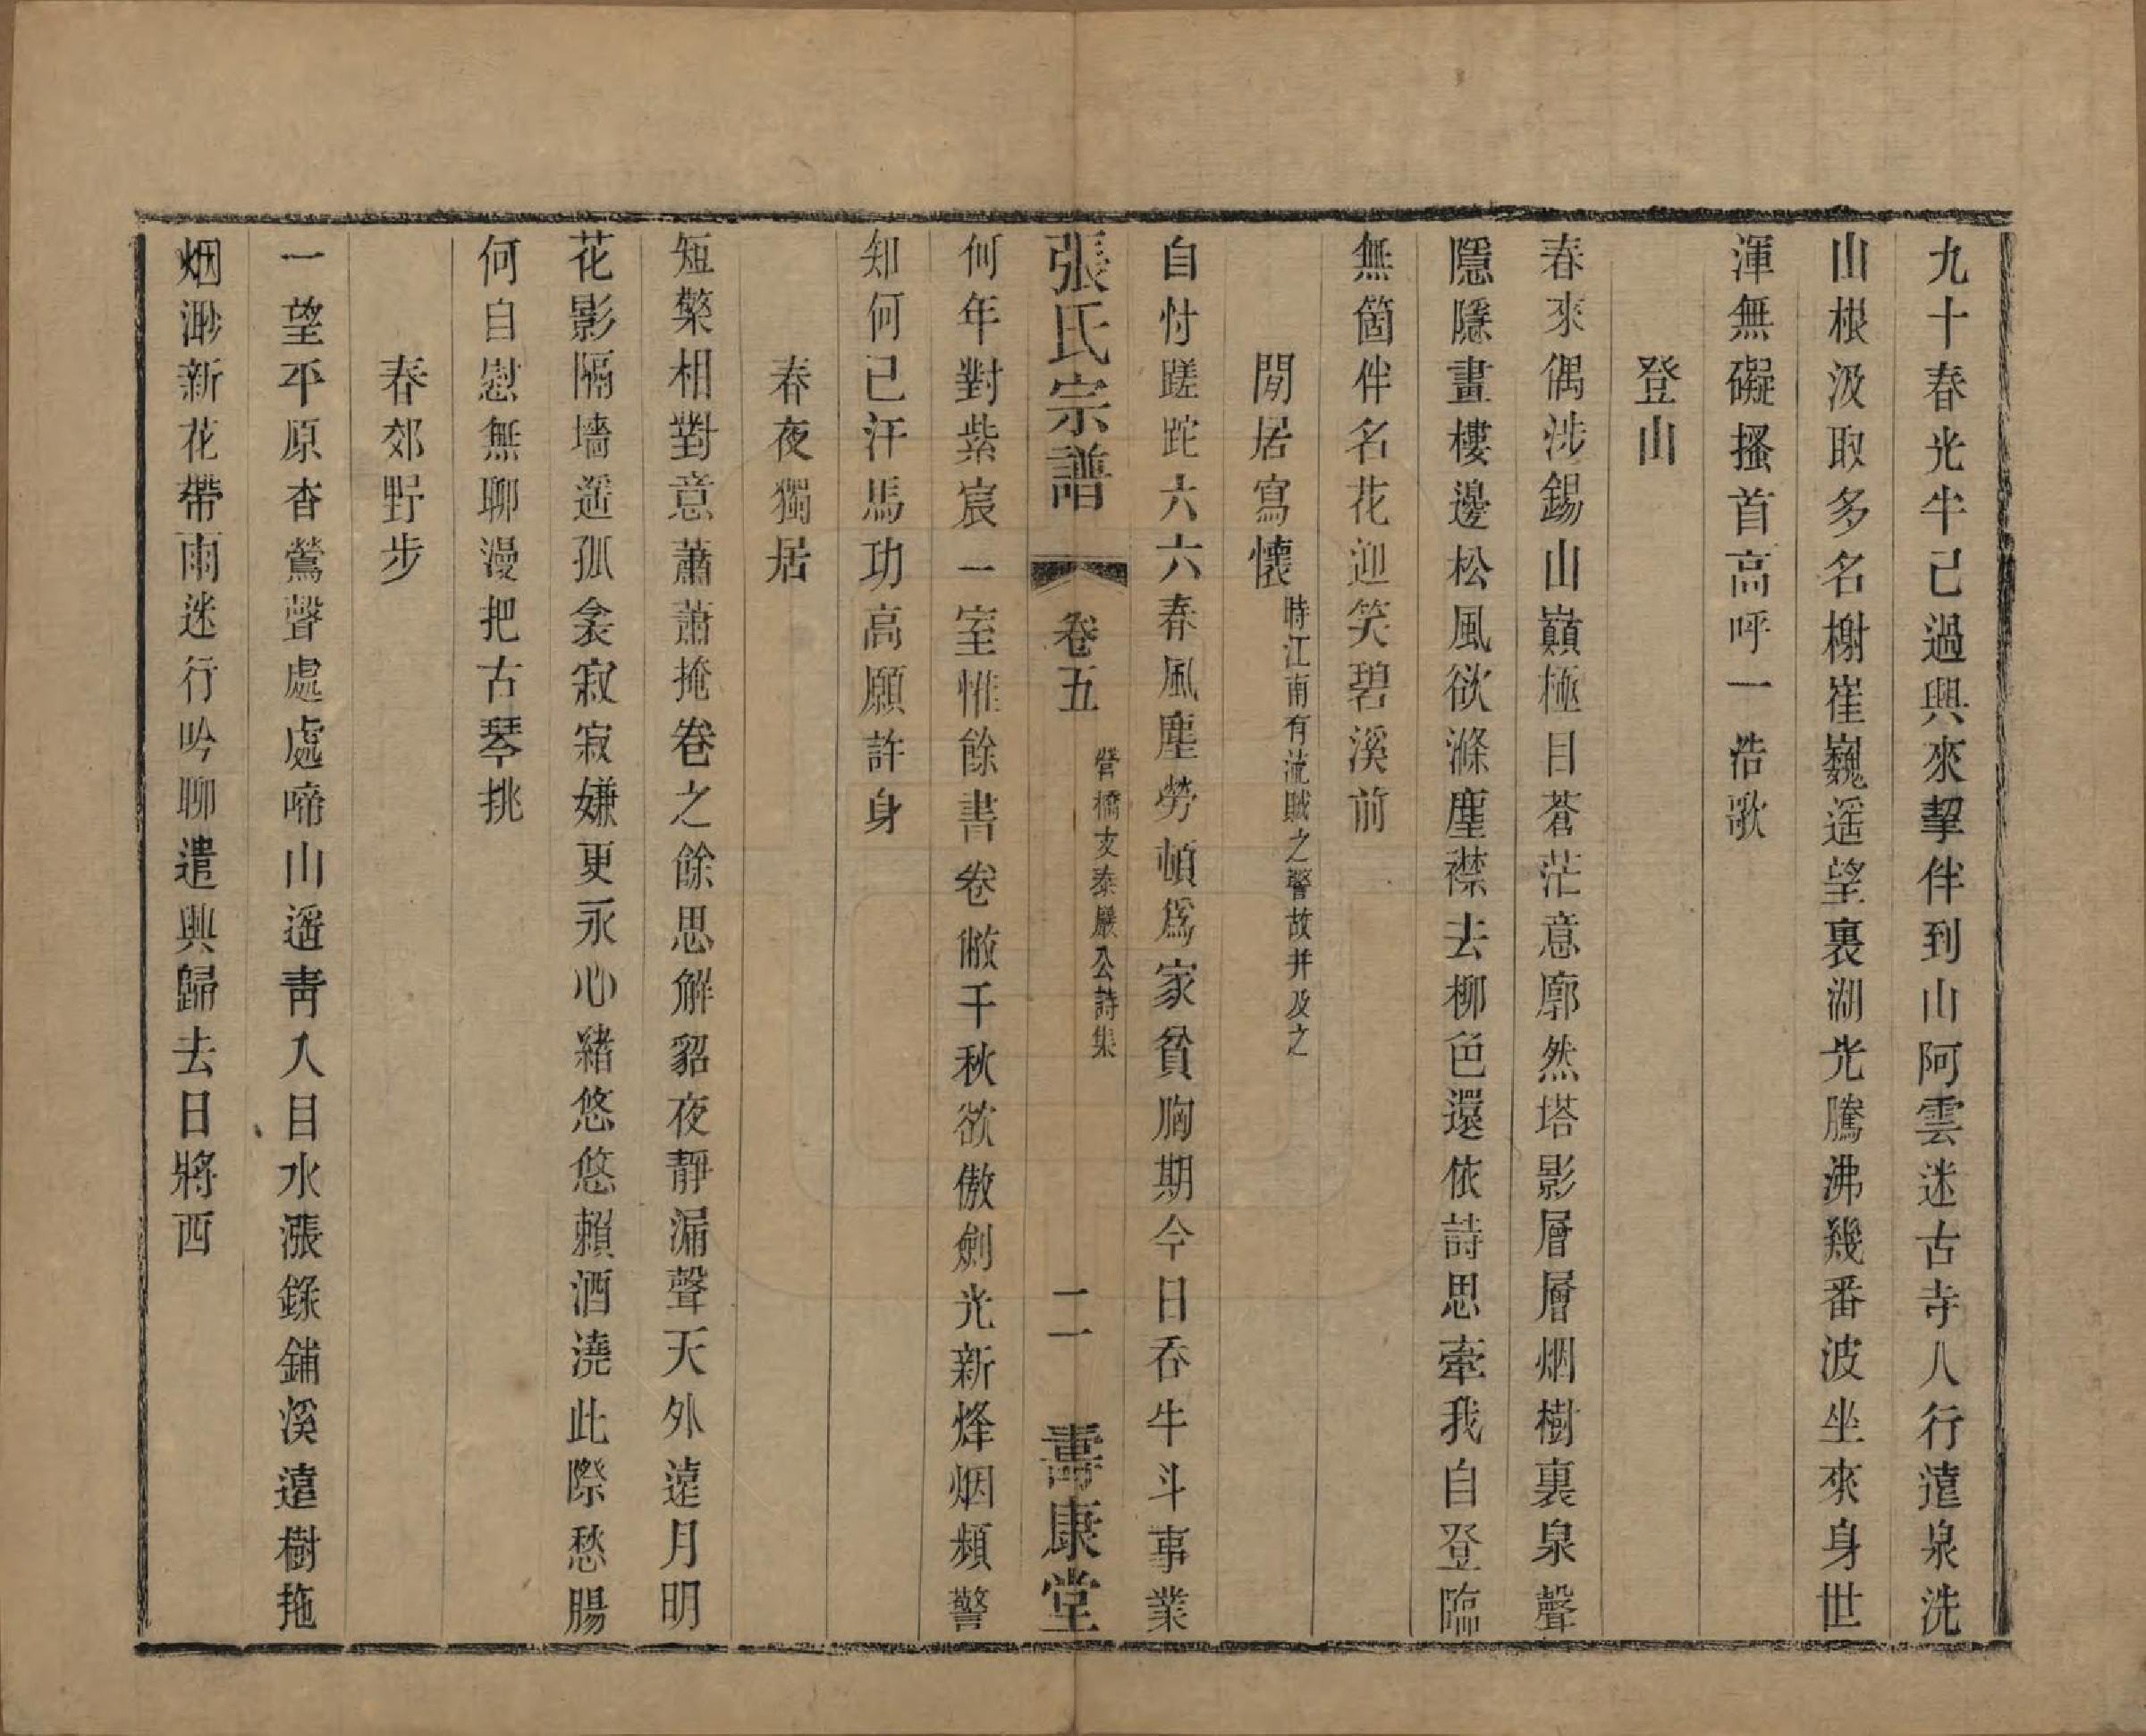 九十春光半已過興來挈伴到山阿雲迷古寺人行遠泉洗
山根汲取多名榭崔巍遥望裏湖光騰沸幾番波坐來身世
渾無礙搔首高呼一浩歌
登山
春來偶涉錫山巔極目蒼茫意廓然塔影層層烟樹裏泉聲
隱隱畫樓邊松風欲滌塵襟去柳色還依詩思牽我自登臨
無箇伴名花迎笑碧溪前
閒居寫懷時江南有流賊之警故并及之
自忖蹉跎六六春風塵勞頓爲家貧胸期今日吞牛斗事業
張氏宗譜 卷五 營橋支泰巖公詩集 二一 壽康堂
何年對紫宸一室惟餘書卷敝千秋欲傲劍光新烽烟頻警
知何已汗馬功高願許身
春夜獨居
短檠相對意蕭蕭掩卷之餘思解貂夜靜漏聲天外遠月明
花影隔墻遥孤衾寂寂嫌更永心緒悠悠賴酒澆此際愁腸
何自慰無聊漫把古琴挑
春郊野步
一望平原杳鶯聲處處啼山遥青人目水漲綠鋪溪遠樹拖
烟渺新花帶雨迷行吟聊遣興歸去日將西